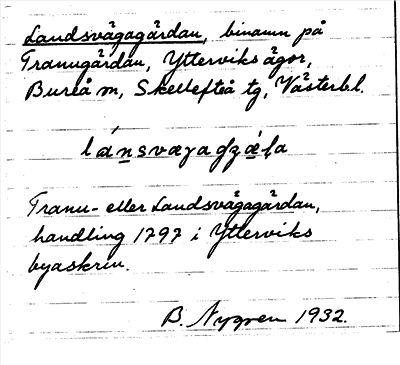 Landsvägagärdan, binamn på
Tranugärdan, Ytterviks ägor,
Bureå sn, Skellefteå tg, Västerbl.
Tranu- eller Landsvägagärdan,
handling 1797 i Ytterviks
byaskrin.
B. Nygren 1932.